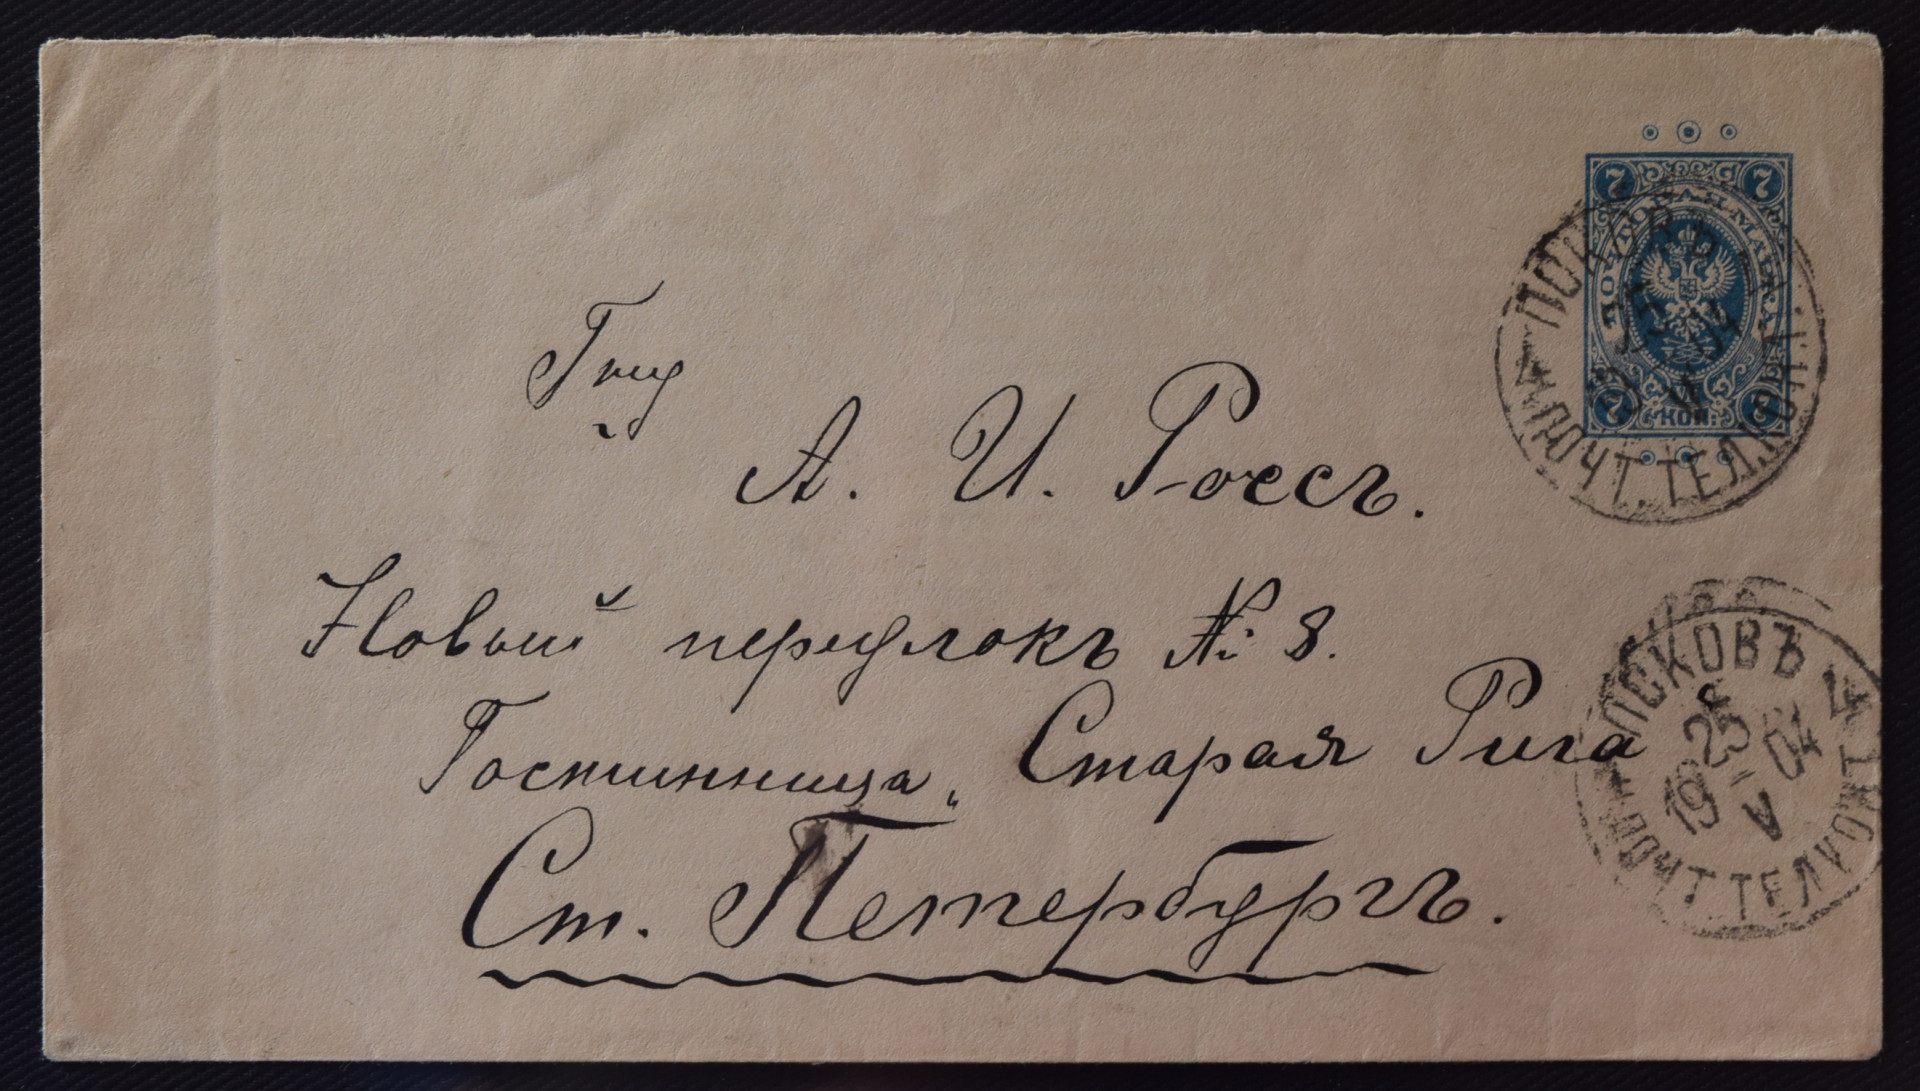 7 7
ПОЧТОВАЯ МАРКА
7 КОП. 7
ПОЧТ. ТЕЛ.
А. И. Россъ.
Новый переулокъ № 8.
Гостинница „Старая Рига
Ст. Петербургъ.
ПСКОВЪ
25
19 V 04
4
ПОЧТ. ТЕЛ.